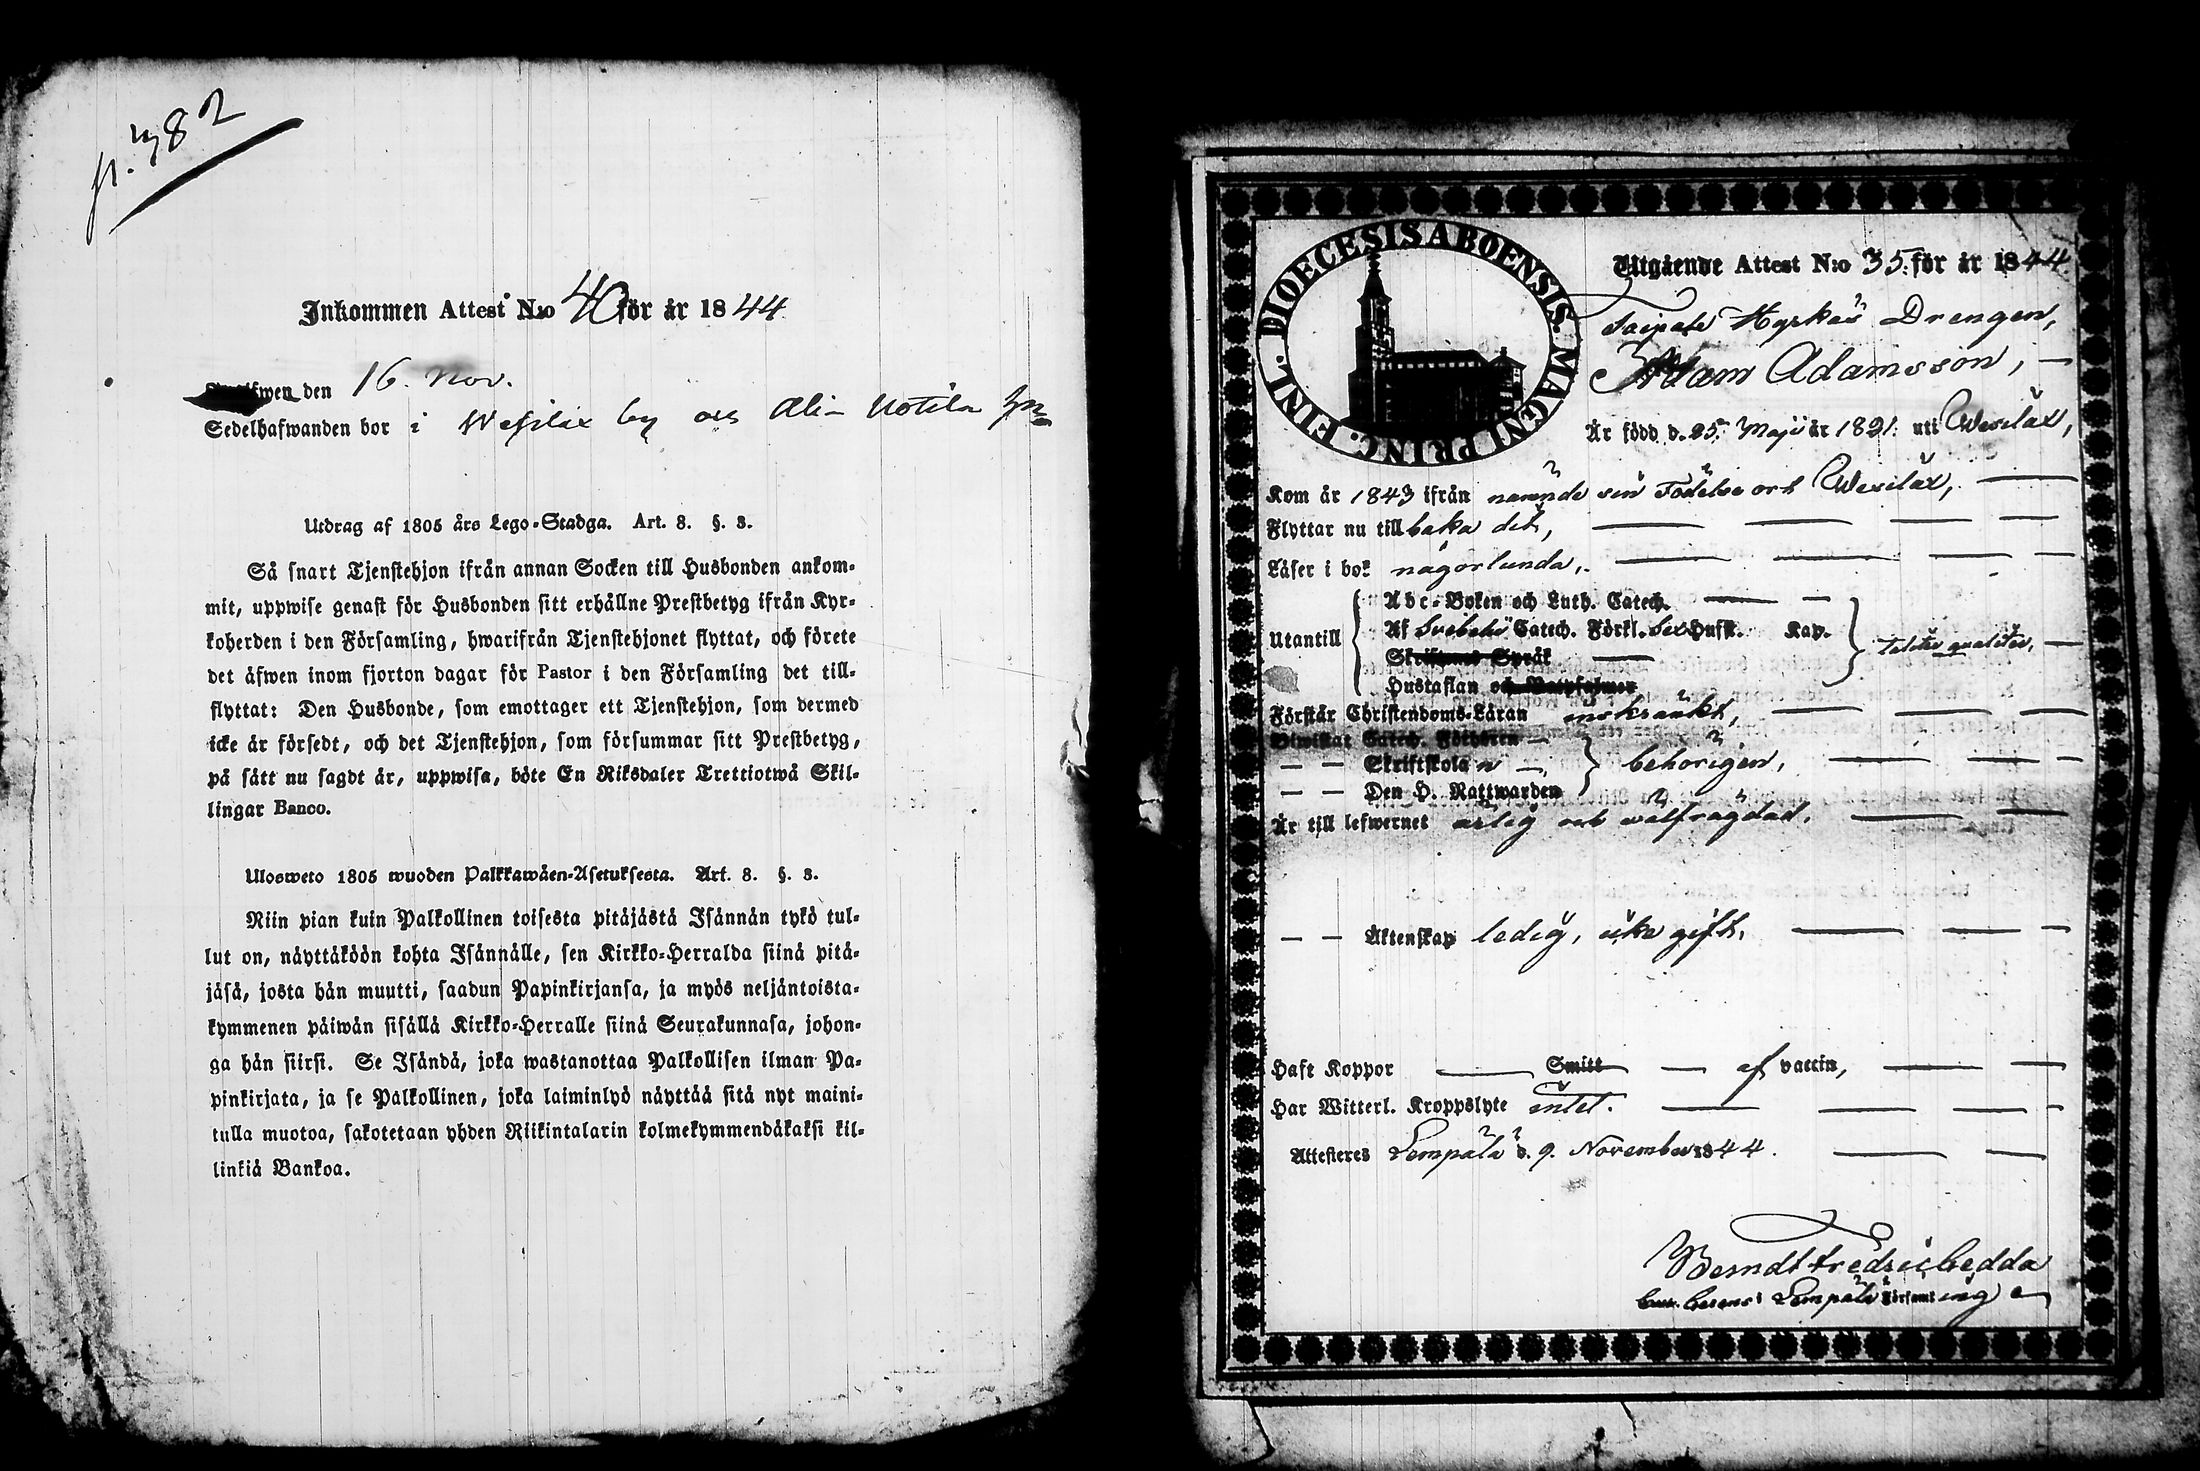 p. 382
Inkommen Attest N:o 40 för år 1844
den 16. Nov.
Sedelhafwanden bor i Wesilax by oss Ali- Uotila
Utdrag af 1805 års Lego-Stadga. Art. 8. §. 3.
Så snart Tjenstehjon ifrån annan Socken till Husbonden ankom-
mit, uppwise genast för Husbonden sitt erhållne Prestbetyg ifrån Kyr-
koherden i den Församling, hwarifrån Tjenstehjonet flyttat, och förete
det äfwen inom fjorton dagar för Pastor i den Församling det till-
flyttat: Den Husbonde, som emottager ett Tjenstehjon, som dermed
icke är försedt, och det Tjenstehjon, som försummar sitt Prestbetyg,
på sätt nu sagdt är, uppwisa, böte En Riksdaler Trettiotwå Skil-
lingar Banco.
Ulosweto 1805 wuoden Palkkawäen-Asetuksesta. Art. 8. §. 3.
Niin pian kuin Palkollinen toisesta pitäjästä Isännän tykö tul-
lut on, näyttäköön kohta Isännälle, sen Kirkko-Herralda siinä pitä-
jäsä, josta hän muutti, saadun Papinkirjansa, ja myös neljäntoista-
kymmenen päiwän sisällä Kirkko-Herralle siinä Seurakunnasa, johon-
ga hän siirsi. Se Isändä, joka wastanottaa Palkollisen ilman Pa-
pinkirjata, ja se Palkollinen, joka laiminlyö näyttää sitä nyt maini-
tulla muotoa, sakotetaan yhden Riikintalarin kolmekymmendäkaksi kil-
linkiä Bankoa.
DIOECESIS ABOENSIS. MAGNI PRINC. FINL.
Utgående Attest N:o 35. för år 1844.
Taipale Hyrkäs Drengen,
Adam Adamsson,
Är född d. 25. Maji år 1821. uti Wesilax,
Kom år 1843 ifrån narende sin Födelse ort Wesilax,
Flyttar nu tillbaka dit,
Läser i bok någorlunda,
Utantill
Abc-Boken och Luth. Catech.
Af Svebelii Catech. Förkl. Sex Hufst. Kap.
Skriftenes Språk
Hustaflan och Botpsalmer
Förstår Christendoms-Läran inskränkt,
Biwistat Catech. Förhören
Skriftskolan behörigen,
Den H. Nattwarden
Är till lefwernet ärlig och wälfrägdad.
Äktenskap ledig, icke gift.
Haft Koppor Smitt af vaccin,
Har Witterl. Kroppslyte intet.
Attesteres Lempälä d. 9. November 1844.
Berndt Fredric Gedda
i Lempälä Församling